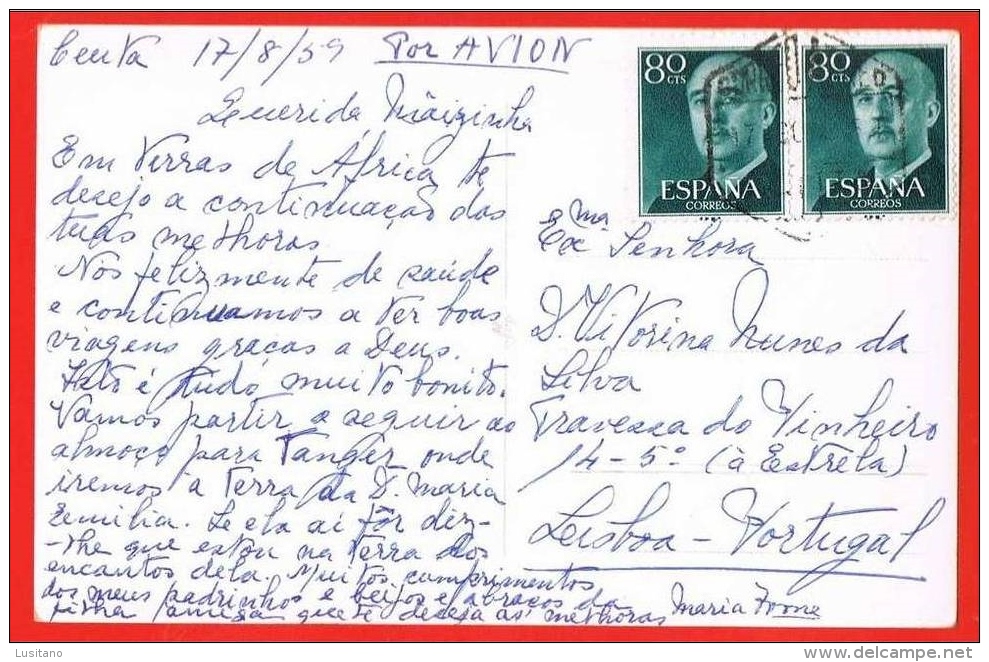 Ceuta 17/8/59 Por AVION
Querida Mãizinha
Em terras de África te
desejo a continuação das
tuas melhoras.
Nós felizmente de saúde
e continuamos a ter boas
viagens graças a Deus.
Isto é tudo muito bonito.
Vamos partir a seguir ao
almoço para Tanger onde
iremos à terra da D. Maria
Emilia. Se ela aí fôr diz-
-lhe que estou na terra dos
encantos dela. Muitos cumprimentos
dos meus padrinhos e beijos e abraços da
filha amiga que te deseja as melhoras Maria Ivone
80 CTS
ESPAÑA
CORREOS
80 CTS
ESPAÑA
CORREOS
Exma Senhora
D. Vitorina Nunes da
Silva
Travessa do Pinheiro
14-5º (à Estrêla)
Lisboa - Portugal
Lusitano
delcampe.net